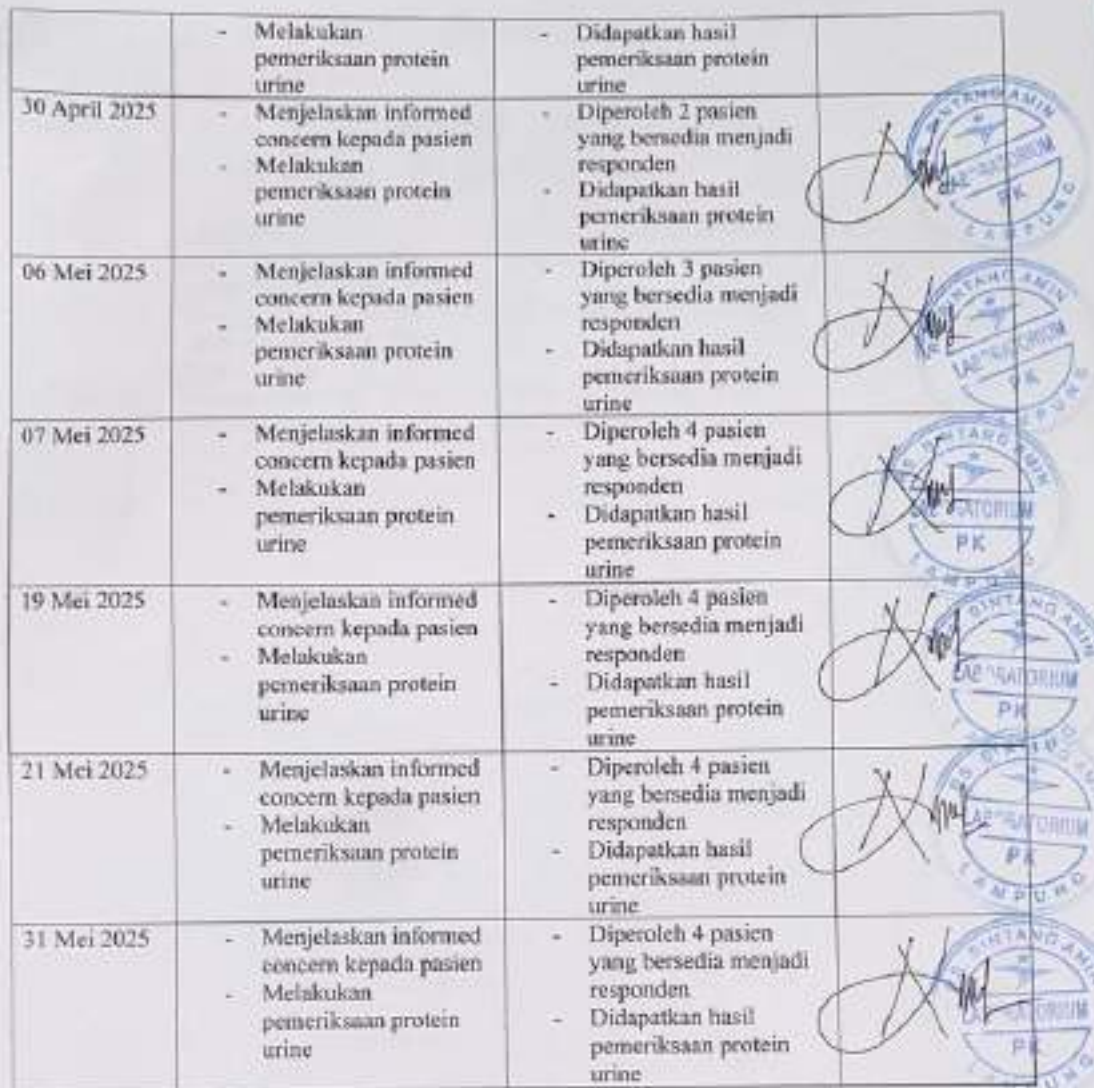 - Melakukan
pemeriksaan protein
urine
- Didapatkan hasil
pemeriksaan protein
urine
30 April 2025
- Menjelaskan informed
concern kepada pasien
- Melakukan
pemeriksaan protein
urine
- Diperoleh 2 pasien
yang bersedia menjadi
responden
- Didapatkan hasil
pemeriksaan protein
urine
BINTANG AMIN
LABORATORIUM
PK
LAMPUNG
06 Mei 2025
- Menjelaskan informed
concern kepada pasien
- Melakukan
pemeriksaan protein
urine
- Diperoleh 3 pasien
yang bersedia menjadi
responden
- Didapatkan hasil
pemeriksaan protein
urine
BINTANG AMIN
LABORATORIUM
PK
LAMPUNG
07 Mei 2025
- Menjelaskan informed
concern kepada pasien
- Melakukan
pemeriksaan protein
urine
- Diperoleh 4 pasien
yang bersedia menjadi
responden
- Didapatkan hasil
pemeriksaan protein
urine
RS BINTANG AMIN
LABORATORIUM
PK
LAMPUNG
19 Mei 2025
- Menjelaskan informed
concern kepada pasien
- Melakukan
pemeriksaan protein
urine
- Diperoleh 4 pasien
yang bersedia menjadi
responden
- Didapatkan hasil
pemeriksaan protein
urine
BINTANG AMIN
LABORATORIUM
PK
21 Mei 2025
- Menjelaskan informed
concern kepada pasien
- Melakukan
pemeriksaan protein
urine
- Diperoleh 4 pasien
yang bersedia menjadi
responden
- Didapatkan hasil
pemeriksaan protein
urine
LABORATORIUM
PK
LAMPUNG
31 Mei 2025
- Menjelaskan informed
concern kepada pasien
- Melakukan
pemeriksaan protein
urine
- Diperoleh 4 pasien
yang bersedia menjadi
responden
- Didapatkan hasil
pemeriksaan protein
urine
BINTANG AMIN
LABORATORIUM
PK